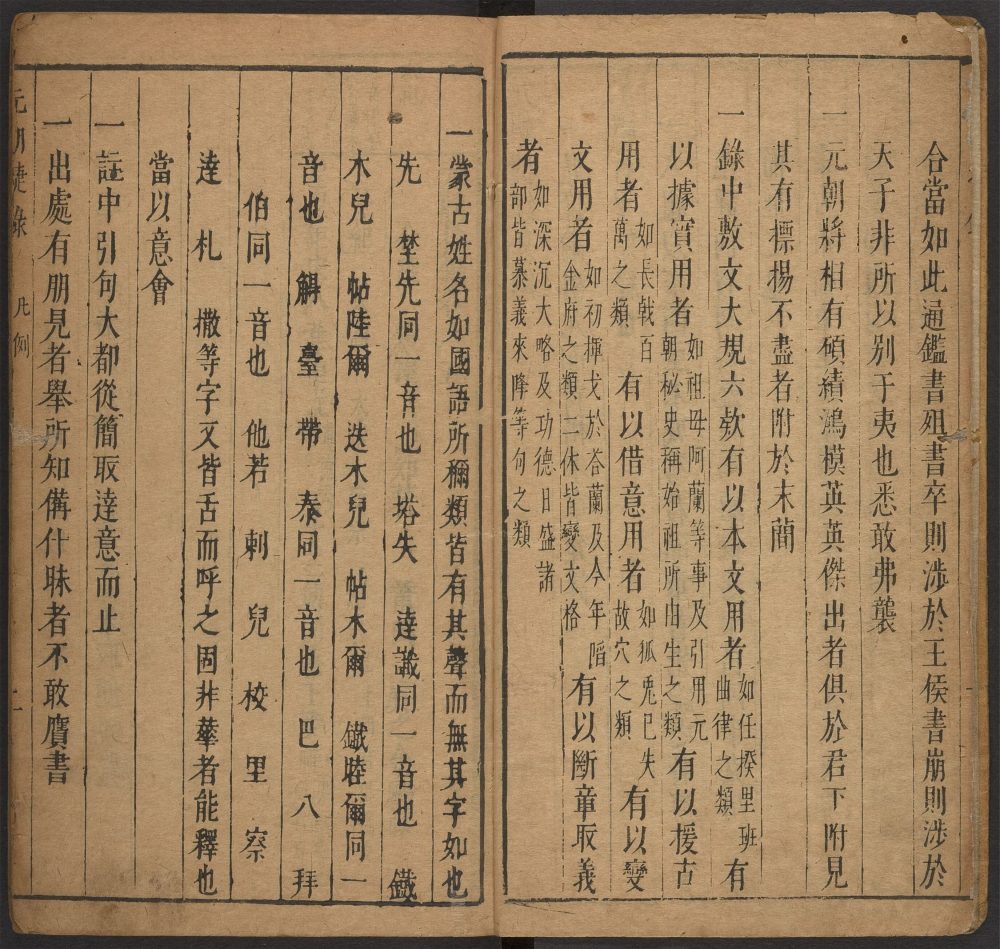 合當如此通鑑書殂書卒則涉於王侯書崩則涉於
天子非所以别于夷也悉敢弗襲
一元朝將相有碩績鴻模英英傑出者俱於君下附見
其有標揚不盡者附於末簡
一錄中敷文大規六欵有以本文用者如任揆里班曲律之類有
以據實用者如祖母阿蘭等事及引用元朝秘史稱始祖所由生之類有以援古
用者如長戟百萬之類有以借意用者如狐兎已失故穴之類有以變
文用者如初揮戈於答蘭及今年㫾金府之類二休皆變文格有以斷章取義
者如深沉大略及功德日盛諸部皆慕義來降等句之類
一蒙古姓名如國語所稱類皆有其聲而無其字如也
先 埜先同一音也 塔失 達識同一音也 鐵
木兒 帖陸爾 迭木兒 帖木爾 鐵陸爾同一
音也 觧 臺 帶 泰同一音也 巴 八 拜
伯同一音也 他若 剌 兒 校 里 察
達 札 撒等字又皆舌而呼之固非華者能釋也
當以意會
一註中引句大都從簡取達意而止
一出處有朋見者舉所知備什昧者不敢贋書
元朝捷錄 凡例 二